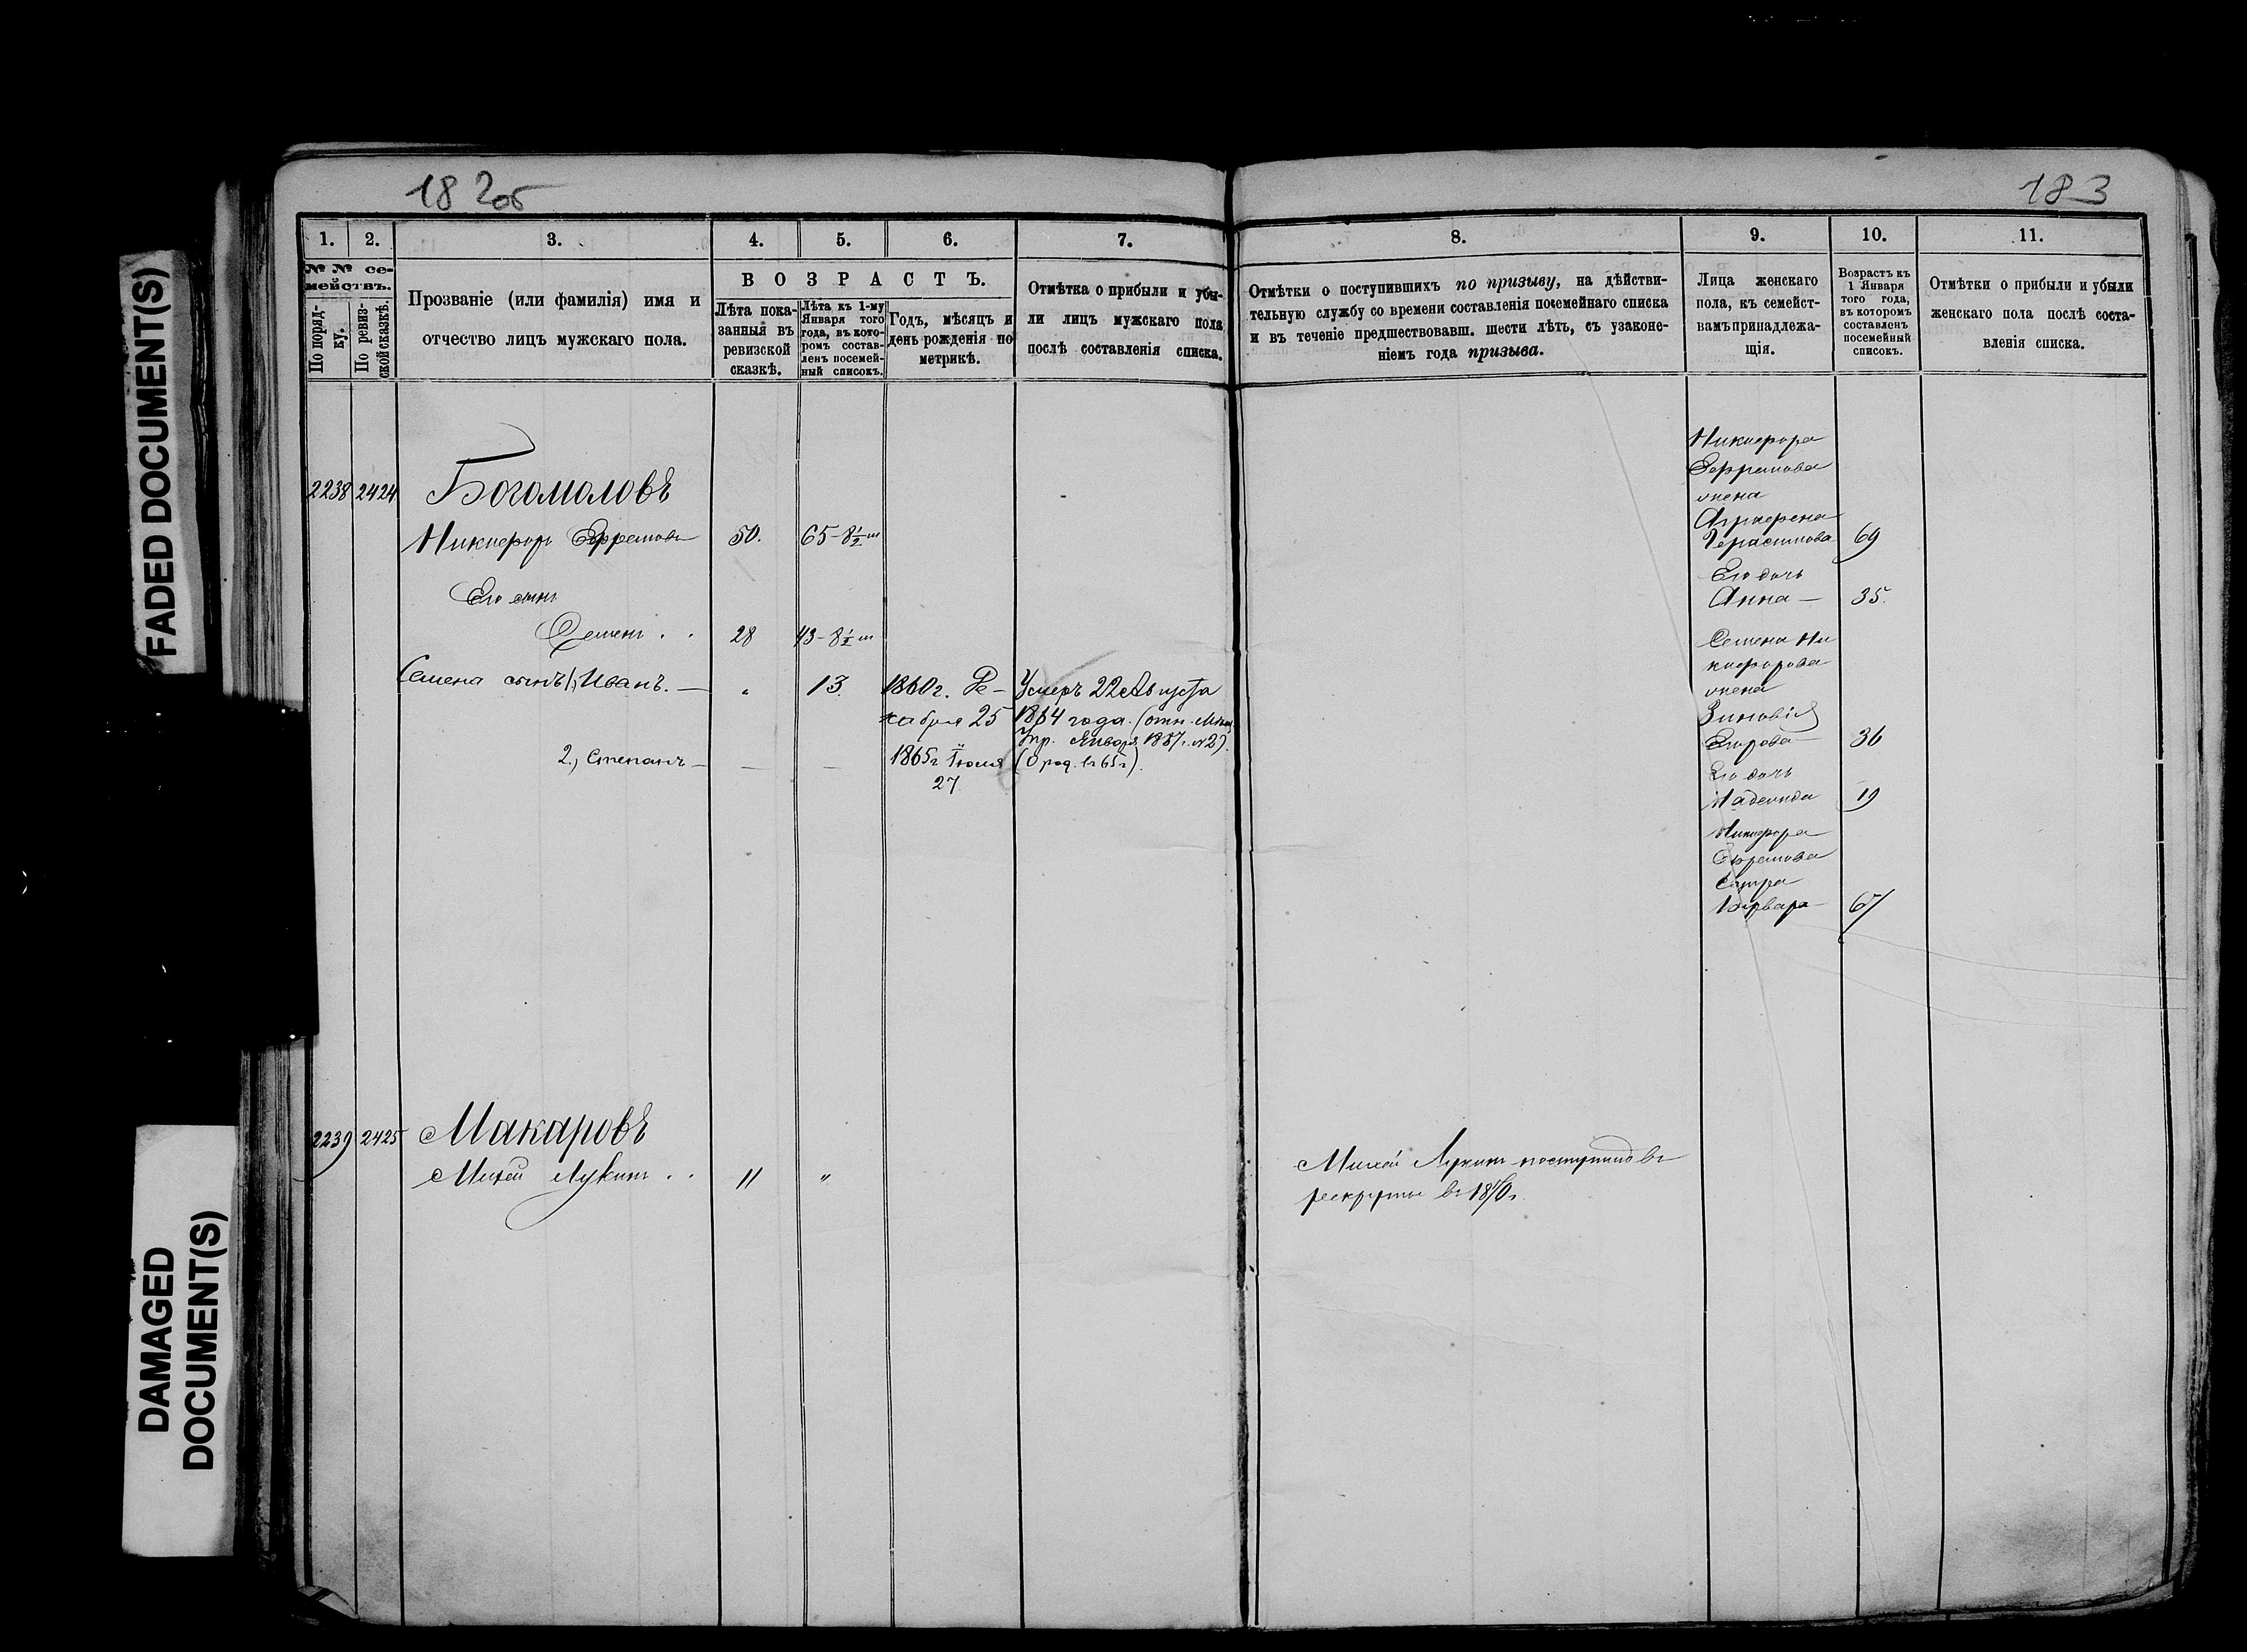 FADED DOCUMENT(S)
DAMAGED
DOCUMENT(S)
182об
183
1.
2.
3.
4.
5.
6.
7.
8.
9.
10.
11.
№ № се-
мействъ.
По поряд-
ку.
По ревиз-
ской сказкѣ.
Прозваніе (или фамилія) имя и
отчество лицъ мужскаго пола.
ВОЗРАСТЪ.
Лѣта пока-
занныя въ
ревизской
сказкѣ.
Лѣта къ 1-му
Января того
года, въ кото-
ромъ состав-
ленъ посемей-
ный списокъ.
Годъ, мѣсяцъ и
день рожденія по
метрикѣ.
Отмѣтка о прибыли и убы-
ли лицъ мужскаго пола
послѣ составленія списка.
Отмѣтки о поступившихъ по призыву, на дѣйстви-
тельную службу со времени составленія посемейнаго списка
и въ теченіе предшествовавш. шести лѣтъ, съ узаконе-
ніемъ года призыва.
Лица женскаго
пола, къ семейст-
вамъ принадлежа-
щія.
Возрастъ къ
1 Января
того года,
въ которомъ
составленъ
посемейный
списокъ.
Отмѣтки о прибыли и убыли
женскаго пола послѣ соста-
вленія списка.
2238 2424 Богомоловъ
Никифоръ Ефремовъ 50. 65-8½ м
Его сынъ
Семенъ . . 28 43-8½ м
Семена сынъ 1, Иванъ. — " 13. 1860 г. Де-
кабря 25
Умеръ 22 Августа
1884 года. (отн. Мѣщ.
Упр. Января 1887 г. №2).
2., Степанъ — — — 1865 г Іюля
27
(О род. въ 65 г).
Никифора
Ефремова
жена
Аграфена
Герасимова 69
Его дочь
Анна — 35.
Семена Ни
кифорова
жена
Зиновія
Егорова — 36
Его дочь
Надежда 19
Никифора
Ефремова
сестра
Варвара — 67
2239 2425 Макаровъ
Михей Лукинъ . . " "
Михей Лукинъ поступилъ въ
рекруты въ